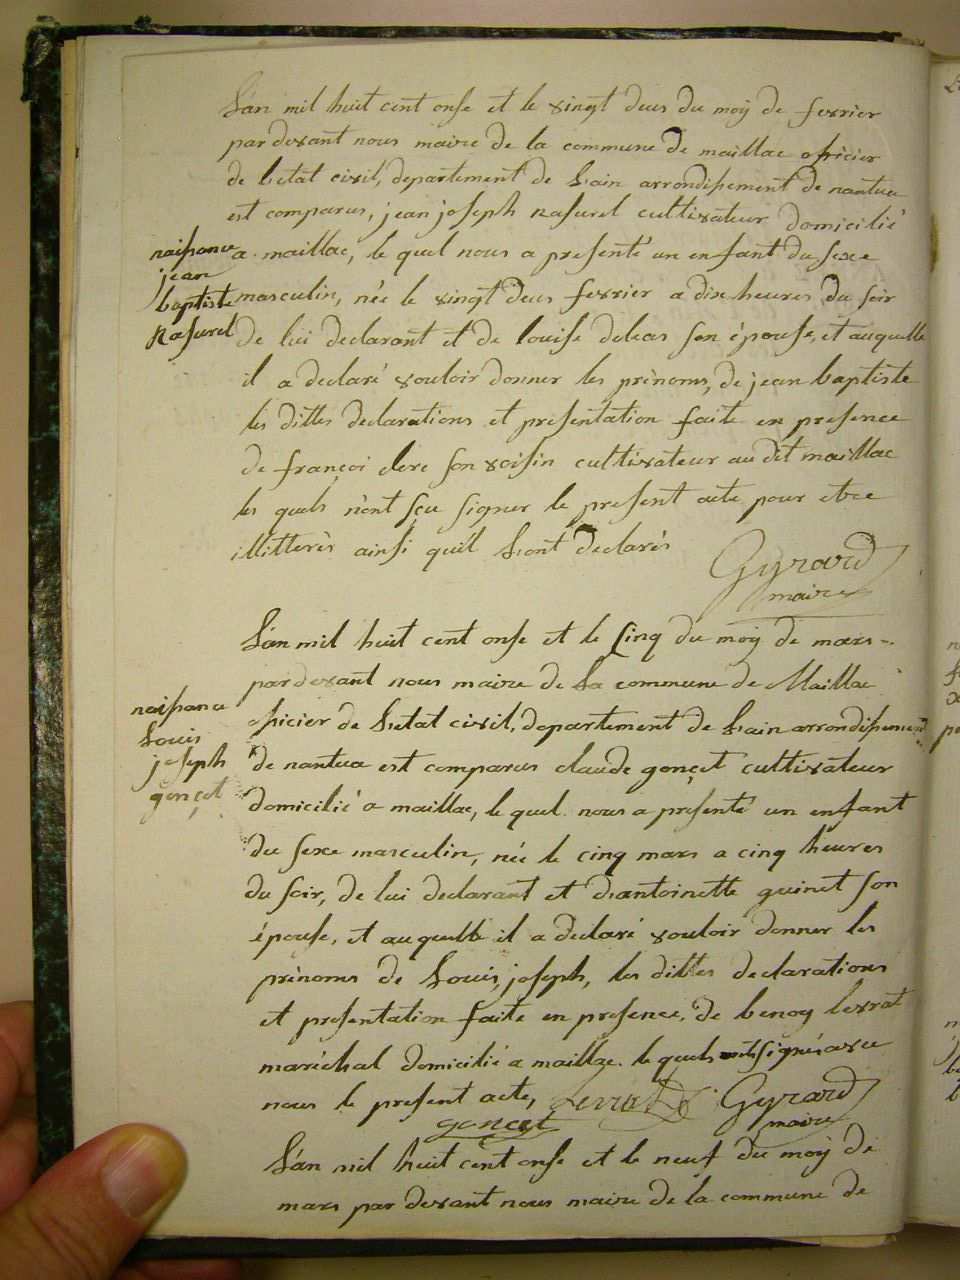 L'an mil huit cent onse et le vingt deus du moy de fevrier
par devant nous maire de la commune de maillac oficier
de l'etat civil, departement de Lain arrondissement de nantua
est comparus, jean joseph Rasurel cultivateur domicilié
naissance
jean
baptiste
Rasurel
a maillac, le quel nous a presenté un enfant du sexe
masculin, née le vingt deus fevrier a dix heures du soir
de lui declarant et de louise deleas son épouse, et auquelle
il a declaré vouloir donner les prènoms, de jean baptiste
les dittes declarations et presentation faite en presence
de françoi clere son voisin cultivateur au dit maillac
les quels n'ont sçu signer le present acte pour etre
illitterès ainsi quil Lont declarès
Gyrard
maire
L'an mil huit cent onse et le Cinq du moy de mars
par devant nous maire de La commune de Maillac
naissance
Louis
joseph
gonçet
oficier de L'etat civil, departement de Lain arrondissement
de nantua est comparus claude gonçet cultivateur
domicilié a maillac, le quel nous a presenté un enfant
du sexe masculin, née le cinq mars a cinq heures
du soir, de lui declarant et d'antoinette guinet son
épouse, et auquelle il a declaré vouloir donner les
prènoms de Louis, joseph, les dittes declarations
et presentation faite en presence, de benoy levrat
maréchal domicilié a maillac. le quels ont signés avec
nous le present acte, Levrat Gyrard
gonçet maire
L'an mil huit cent onse et le neuf du moy de
mars par devant nous maire de la commune de